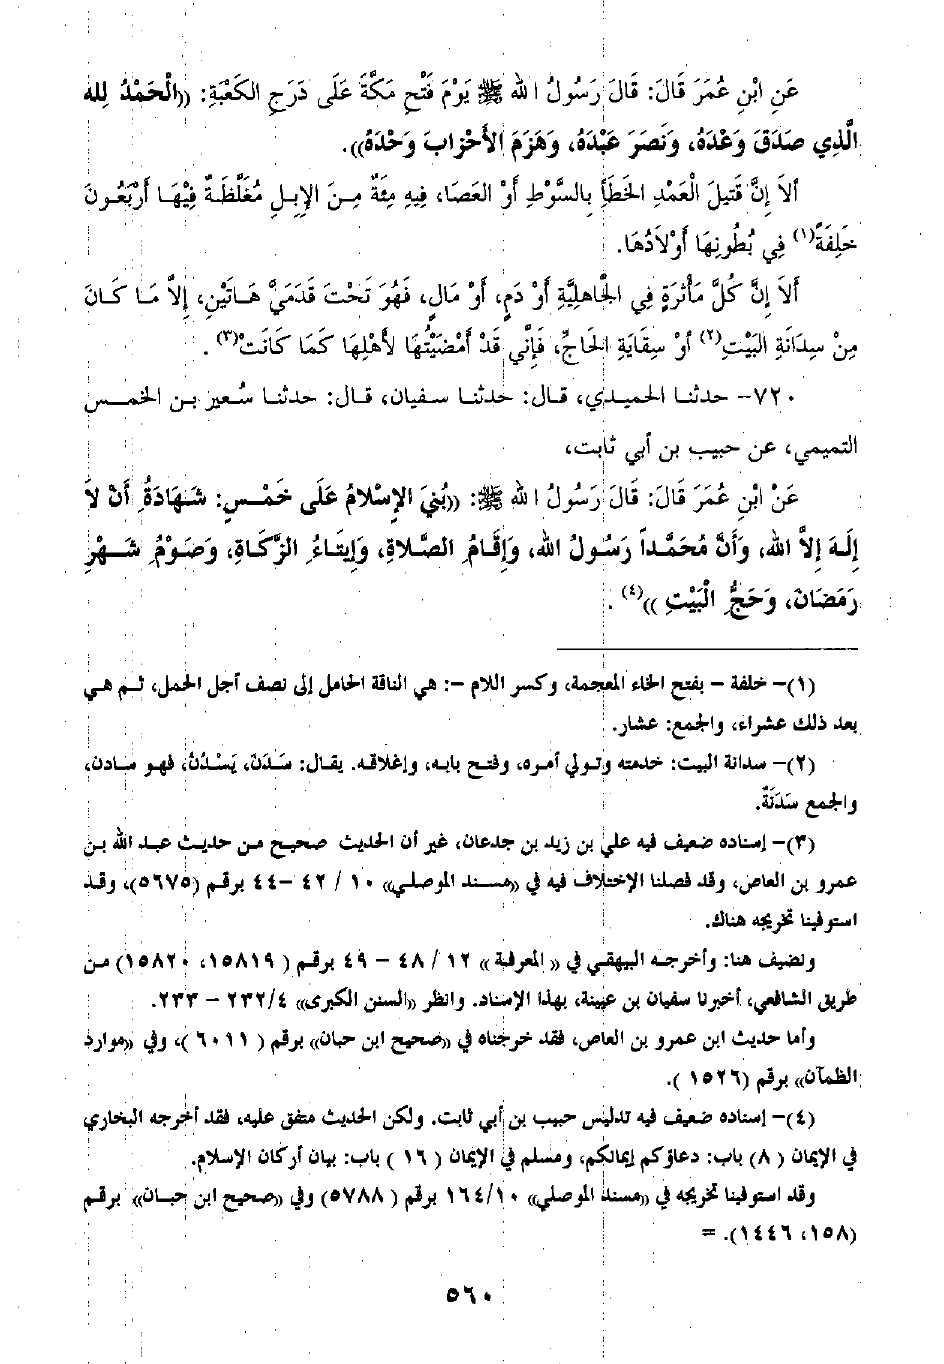 عَنِ ابْنِ عُمَرَ قَالَ: قَالَ رَسُولُ الله ﷺ يَوْمَ فَتْحِ مَكَّةَ عَلَى دَرَجِ الكَعْبَةِ: ((الْحَمْدُ لِله
الَّذِي صَدَقَ وَعْدَهُ، وَنَصَرَ عَبْدَهُ، وَهَزَمَ الأَحْزابَ وَحْدَهُ)).
ألاَ إِنَّ قَتِيلَ الْعَمْدِ الخَطَأِ بِالسَّوْطِ أَوْ العَصَا، فِيهِ مِئَةٌ مِنَ الإِبِلِ مُغَلَّظَةٌ فِيْهَا أَرْبَعُونَ
خَلِفَةً(١) فِي بُطُونِهَا أَوْلاَدُهَا.
ألاَ إِنَّ كُلَّ مَأْثرَةٍ فِي الجَاهِلِيَّةِ أَوْ دَمٍ، أَوْ مَالٍ، فَهُوَ تَحْتَ قَدَمَيَّ هَاتَيْنِ، إِلاَّ مَا كَانَ
مِنْ سِدَانَةِ البَيْتِ(٢) أوْ سِقَايَةِ الحَاجِّ، فَإِنِّي قَدْ أَمْضَيْتُهَا لأَهْلِهَا كَمَا كَانَتْ(٣) .
٧٢٠- حدثنا الحميدي، قال: حدثنا سفيان، قال: حدثنا سُعير بن الخمس
التميمي، عن حبيب بن أبي ثابت،
عَنْ ابْنِ عُمَرَ قَالَ: قَالَ رَسُولُ الله ﷺ: ((بُنِيَ الإِسْلامُ عَلَى خَمْسٍ: شَهَادَةُ أَنْ لاَ
إِلَهَ إِلاَّ الله، وَأَنَّ مُحَمَّداً رَسُولُ الله، وَإِقَامُ الصَّلاةِ، وَإِيتَاءُ الزَّكَاةِ، وَصَوْمُ شَهْرِ
رَمَضَانَ، وَحَجُّ الْبَيْتِ ))(٤) .
(١)- خلفة - بفتح الخاء المعجمة، وكسر اللام -: هي الناقة الحامل إلى نصف أجل الحمل، ثم هي
بعد ذلك عشراء، والجمع: عشار.
(٢)- سدانة البيت: خدمته وتولي أمره، وفتح بابه، وإغلاقه. يقال: سَدَنَ، يَسْدُنُ، فهو سادن،
والجمع سَدَنَةٌ.
(٣)- إسناده ضعيف فيه علي بن زيد بن جدعان، غير أن الحديث صحيح من حديث عبد الله بن
عمرو بن العاص، وقد فصلنا الإختلاف فيه في ((مسند الموصلي)) ١٠ / ٤٢ -٤٤ برقم (٥٦٧٥)، وقد
استوفينا تخريجه هناك.
ونضيف هنا: وأخرجه البيهقي في (( المعرفة )) ١٢ / ٤٨ - ٤٩ برقم ( ١٥٨١٩، ١٥٨٢٠) من
طريق الشافعي، أخبرنا سفيان بن عيينة، بهذا الإسناد. وانظر ((السنن الكبرى)) ٢٣٢/٤ - ٢٣٣.
وأما حديث ابن عمرو بن العاص، فقد خرجناه في ((صحيح ابن حبان)) برقم ( ٦٠١١ )، وفي ((موارد
الظمآن)) برقم (١٥٢٦ ).
(٤)- إسناده ضعيف فيه تدليس حبيب بن أبي ثابت. ولكن الحديث متفق عليه، فقد أخرجه البخاري
في الإيمان ( ٨) باب: دعاؤكم إيمانكم، ومسلم في الإيمان ( ١٦ ) باب: بيان أركان الإسلام.
وقد استوفينا تخريجه في ((مسند الموصلي)) ١٦٤/١٠ برقم ( ٥٧٨٨) وفي ((صحيح ابن حبان)) برقم
(١٥٨، ١٤٤٦). =
٥٦٠